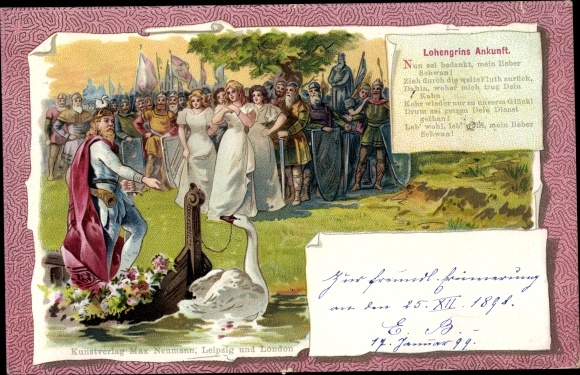 Lohengrins Ankunft.
Nun sei bedankt, mein lieber
Schwan!
Zieh durch die weite Fluth zurück,
Dahin, woher mich trug Dein
Kahn,
Kehr wieder nur zu unserm Glück!
Drum sei getreu Dein Dienst
gethan!
Leb' wohl, leb' wohl, mein lieber
Schwan!
Zur freundl. Erinnerung
an den 25. XII. 1898.
E. B. -
17. Januar 99.
Kunstverlag Max Neumann, Leipzig und London